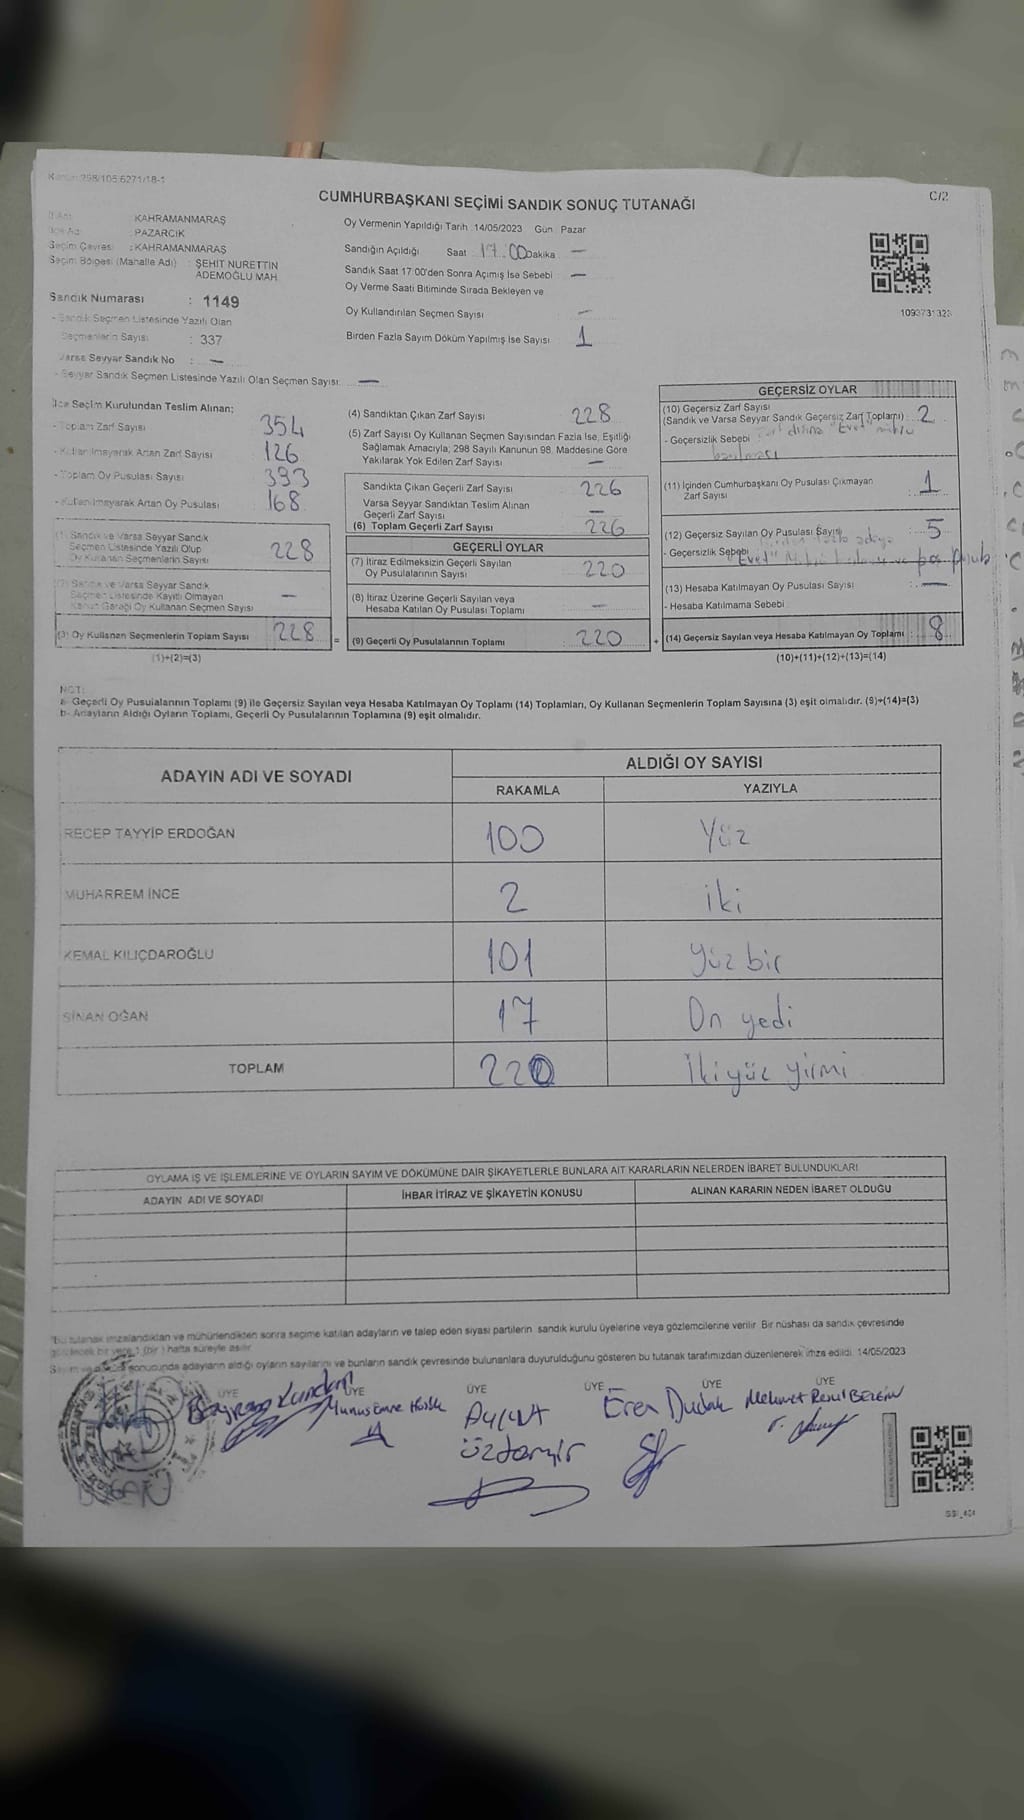 Kanun:298/105 6271/18-1
C/2
CUMHURBAŞKANI SEÇİMİ SANDIK SONUÇ TUTANAĞI
İl Adı : KAHRAMANMARAŞ
İlçe Adı : PAZARCIK
Seçim Çevresi : KAHRAMANMARAŞ
Seçim Bölgesi (Mahalle Adı) : ŞEHİT NURETTİN
ADEMOĞLU MAH.
Sandık Numarası : 1149
- Sandık Seçmen Listesinde Yazılı Olan
Seçmenlerin Sayısı : 337
Varsa Seyyar Sandık No : —
- Seyyar Sandık Seçmen Listesinde Yazılı Olan Seçmen Sayısı: —
Oy Vermenin Yapıldığı Tarih : 14/05/2023 Gün : Pazar
Sandığın Açıldığı Saat 17:00 Dakika —
Sandık Saat 17:00'den Sonra Açımış İse Sebebi —
Oy Verme Saati Bitiminde Sırada Bekleyen ve
Oy Kullandırılan Seçmen Sayısı —
Birden Fazla Sayım Döküm Yapılmış İse Sayısı 1
İlçe Seçim Kurulundan Teslim Alınan;
- Toplam Zarf Sayısı 354
- Kullanılmayarak Artan Zarf Sayısı 126
- Toplam Oy Pusulası Sayısı 393
- Kullanılmayarak Artan Oy Pusulası 168
(1) Sandık ve Varsa Seyyar Sandık
Seçmen Listesinde Yazılı Olup
Oy Kullanan Seçmenlerin Sayısı 228
(2) Sandık ve Varsa Seyyar Sandık
Seçmen Listesinde Kayıtlı Olmayan
Kanun Gereği Oy Kullanan Seçmen Sayısı —
(3) Oy Kullanan Seçmenlerin Toplam Sayısı 228 =
(1)+(2)=(3)
(4) Sandıktan Çıkan Zarf Sayısı 228
(5) Zarf Sayısı Oy Kullanan Seçmen Sayısından Fazla İse, Eşitliği
Sağlamak Amacıyla, 298 Sayılı Kanunun 98. Maddesine Göre
Yakılarak Yok Edilen Zarf Sayısı —
Sandıkta Çıkan Geçerli Zarf Sayısı 226
Varsa Seyyar Sandıktan Teslim Alınan
Geçerli Zarf Sayısı —
(6) Toplam Geçerli Zarf Sayısı 226
GEÇERLİ OYLAR
(7) İtiraz Edilmeksizin Geçerli Sayılan
Oy Pusulalarının Sayısı 220
(8) İtiraz Üzerine Geçerli Sayılan veya
Hesaba Katılan Oy Pusulası Toplamı —
(9) Geçerli Oy Pusulalarının Toplamı 220 +
GEÇERSİZ OYLAR
(10) Geçersiz Zarf Sayısı
(Sandık ve Varsa Seyyar Sandık Geçersiz Zarf Toplamı) : 2
- Geçersizlik Sebebi "Evet" mührü
basılması
(11) İçinden Cumhurbaşkanı Oy Pusulası Çıkmayan
Zarf Sayısı 1
(12) Geçersiz Sayılan Oy Pusulası Sayısı 5
- Geçersizlik Sebebi "Evet"
(13) Hesaba Katılmayan Oy Pusulası Sayısı —
- Hesaba Katılmama Sebebi
(14) Geçersiz Sayılan veya Hesaba Katılmayan Oy Toplamı : 8
(10)+(11)+(12)+(13)=(14)
NOT:
a- Geçerli Oy Pusulalarının Toplamı (9) ile Geçersiz Sayılan veya Hesaba Katılmayan Oy Toplamı (14) Toplamları, Oy Kullanan Seçmenlerin Toplam Sayısına (3) eşit olmalıdır. (9)+(14)=(3)
b- Adayların Aldığı Oyların Toplamı, Geçerli Oy Pusulalarının Toplamına (9) eşit olmalıdır.
ADAYIN ADI VE SOYADI
ALDIĞI OY SAYISI
RAKAMLA YAZIYLA
RECEP TAYYİP ERDOĞAN 100 Yüz
MUHARREM İNCE 2 iki
KEMAL KILIÇDAROĞLU 101 Yüz bir
SİNAN OĞAN 17 On yedi
TOPLAM 220 İkiyüz yirmi
OYLAMA İŞ VE İŞLEMLERİNE VE OYLARIN SAYIM VE DÖKÜMÜNE DAİR ŞİKAYETLERLE BUNLARA AİT KARARLARIN NELERDEN İBARET BULUNDUKLARI
ADAYIN ADI VE SOYADI İHBAR İTİRAZ VE ŞİKAYETİN KONUSU ALINAN KARARIN NEDEN İBARET OLDUĞU
*Bu tutanak imzalandıktan ve mühürlendikten sonra seçime katılan adayların ve talep eden siyasi partilerin sandık kurulu üyelerine veya gözlemcilerine verilir. Bir nüshası da sandık çevresinde
görülecek bir yere 1 (bir) hafta süreyle asılır
sonucunda adayların aldığı oyların sayılarını ve bunların sandık çevresinde bulunanlara duyurulduğunu gösteren bu tutanak tarafımızdan düzenlenerek imza edildi. 14/05/2023
ÜYE ÜYE ÜYE ÜYE ÜYE ÜYE
Yunus Emre
Aykut
Üzdemir
Eren Dudak
Mehmet
BAŞKAN